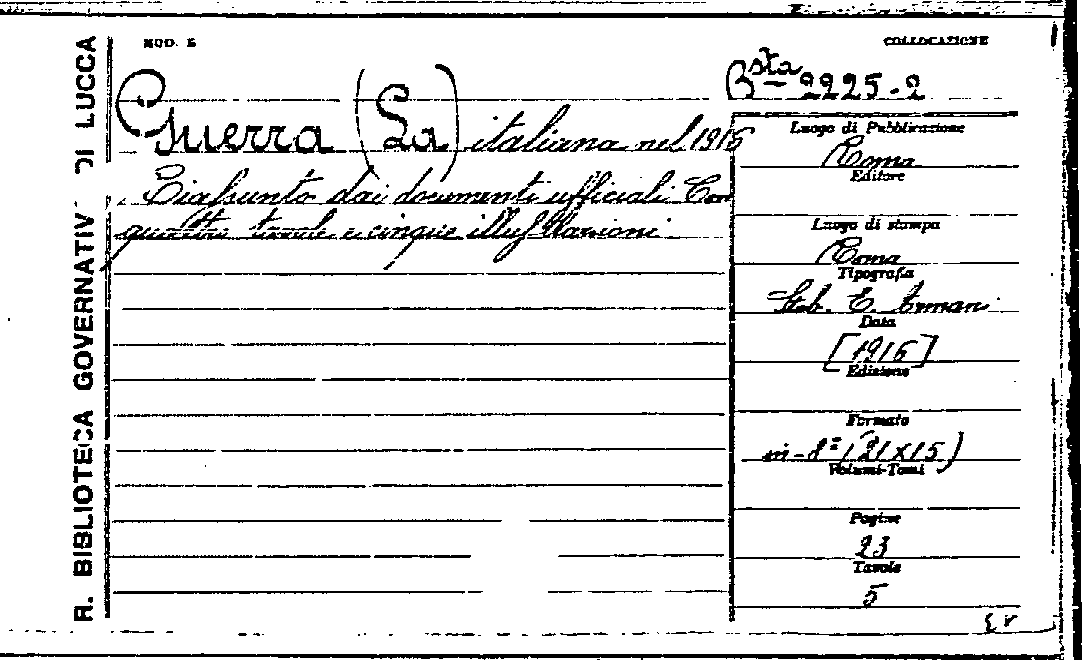 R. BIBLIOTECA GOVERNATIV DI LUCCA
MOD. E
COLLOCAZIONE
Bsta 2225-2
Guerra (La) italiana nel 1915
Riassunto dai documenti ufficiali Con
quattro tavole e cinque illustrazioni
Luogo di Pubblicazione
Roma
Editore
Luogo di stampa
Roma
Tipografia
Stab. E. Armani
Data
[1916]
Edizione
Formato
in-8º (21x15)
Volumi-Tomi
Pagine
23
Tavole
5